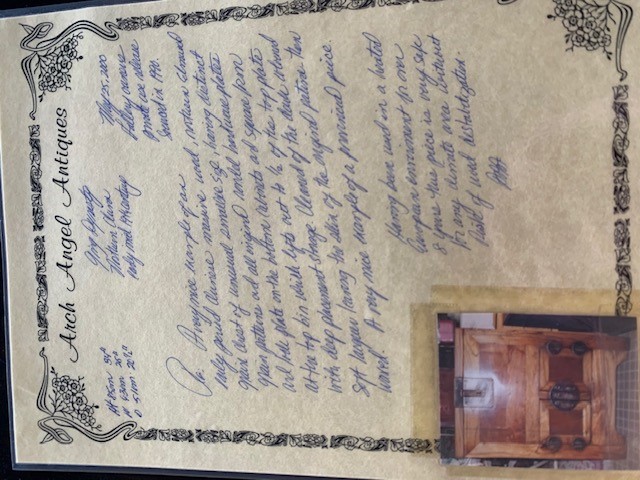 Arch Angel Antiques
Ht 85cm 34"
W 63cm 25"
D 51cm 20½"
Qing Dynasty
Northern China
early mid 19th century
May 25, 2000
Gallery owners
private use release
Secured in 1990.
Re: A very nice example of an
early period Chinese massive wood, northern Elmwood
grain chest of unusual smaller size, having distinct
grain patterns and all original round hardware plates
and lock plate on the bottom cabinets and square form
at the top bin which lifts out to ½ of the top plate
with deep placement storage. Cleaned of the dark coloured
soft lacquer leaving the skin of the original patina then
waxed. A very nice example of a provincial piece.
Having been used in a heated
European enviroment for over
8 years this piece is very safe
for any climate area without
Risk of wood destabilization.